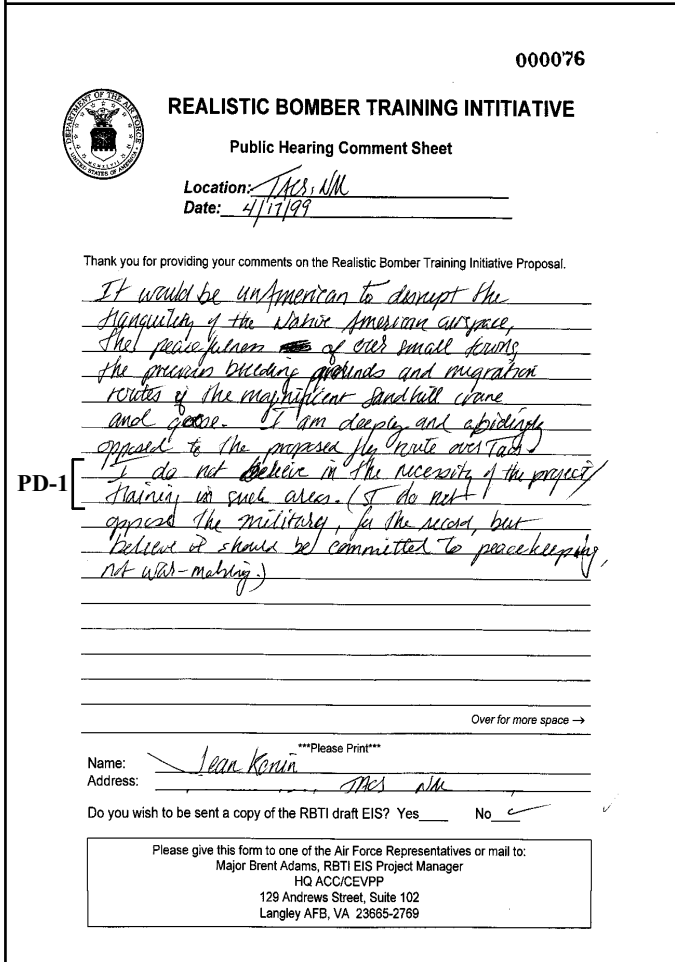 000076
DEPARTMENT OF THE AIR FORCE
MCMXLVII
UNITED STATES OF AMERICA
REALISTIC BOMBER TRAINING INTITIATIVE
Public Hearing Comment Sheet
Location: Taos, NM
Date: 4/17/99
Thank you for providing your comments on the Realistic Bomber Training Initiative Proposal.
It would be unAmerican to disrupt the
tranquility of the Native American airspace,
the peacefulness of our small towns,
the precious building grounds and migration
routes of the magnificent sandhill crane
and goose. I am deeply and abidingly
opposed to the proposed fly route over Taos.
PD-1
I do not believe in the necessity of the project/
training in such areas. (I do not
oppose the military, for the record, but
believe it should be committed to peacekeeping,
not war-making.)
Over for more space →
***Please Print***
Name: Jean Kenin
Address: Taos NM
Do you wish to be sent a copy of the RBTI draft EIS? Yes____ No ✓
Please give this form to one of the Air Force Representatives or mail to:
Major Brent Adams, RBTI EIS Project Manager
HQ ACC/CEVPP
129 Andrews Street, Suite 102
Langley AFB, VA 23665-2769